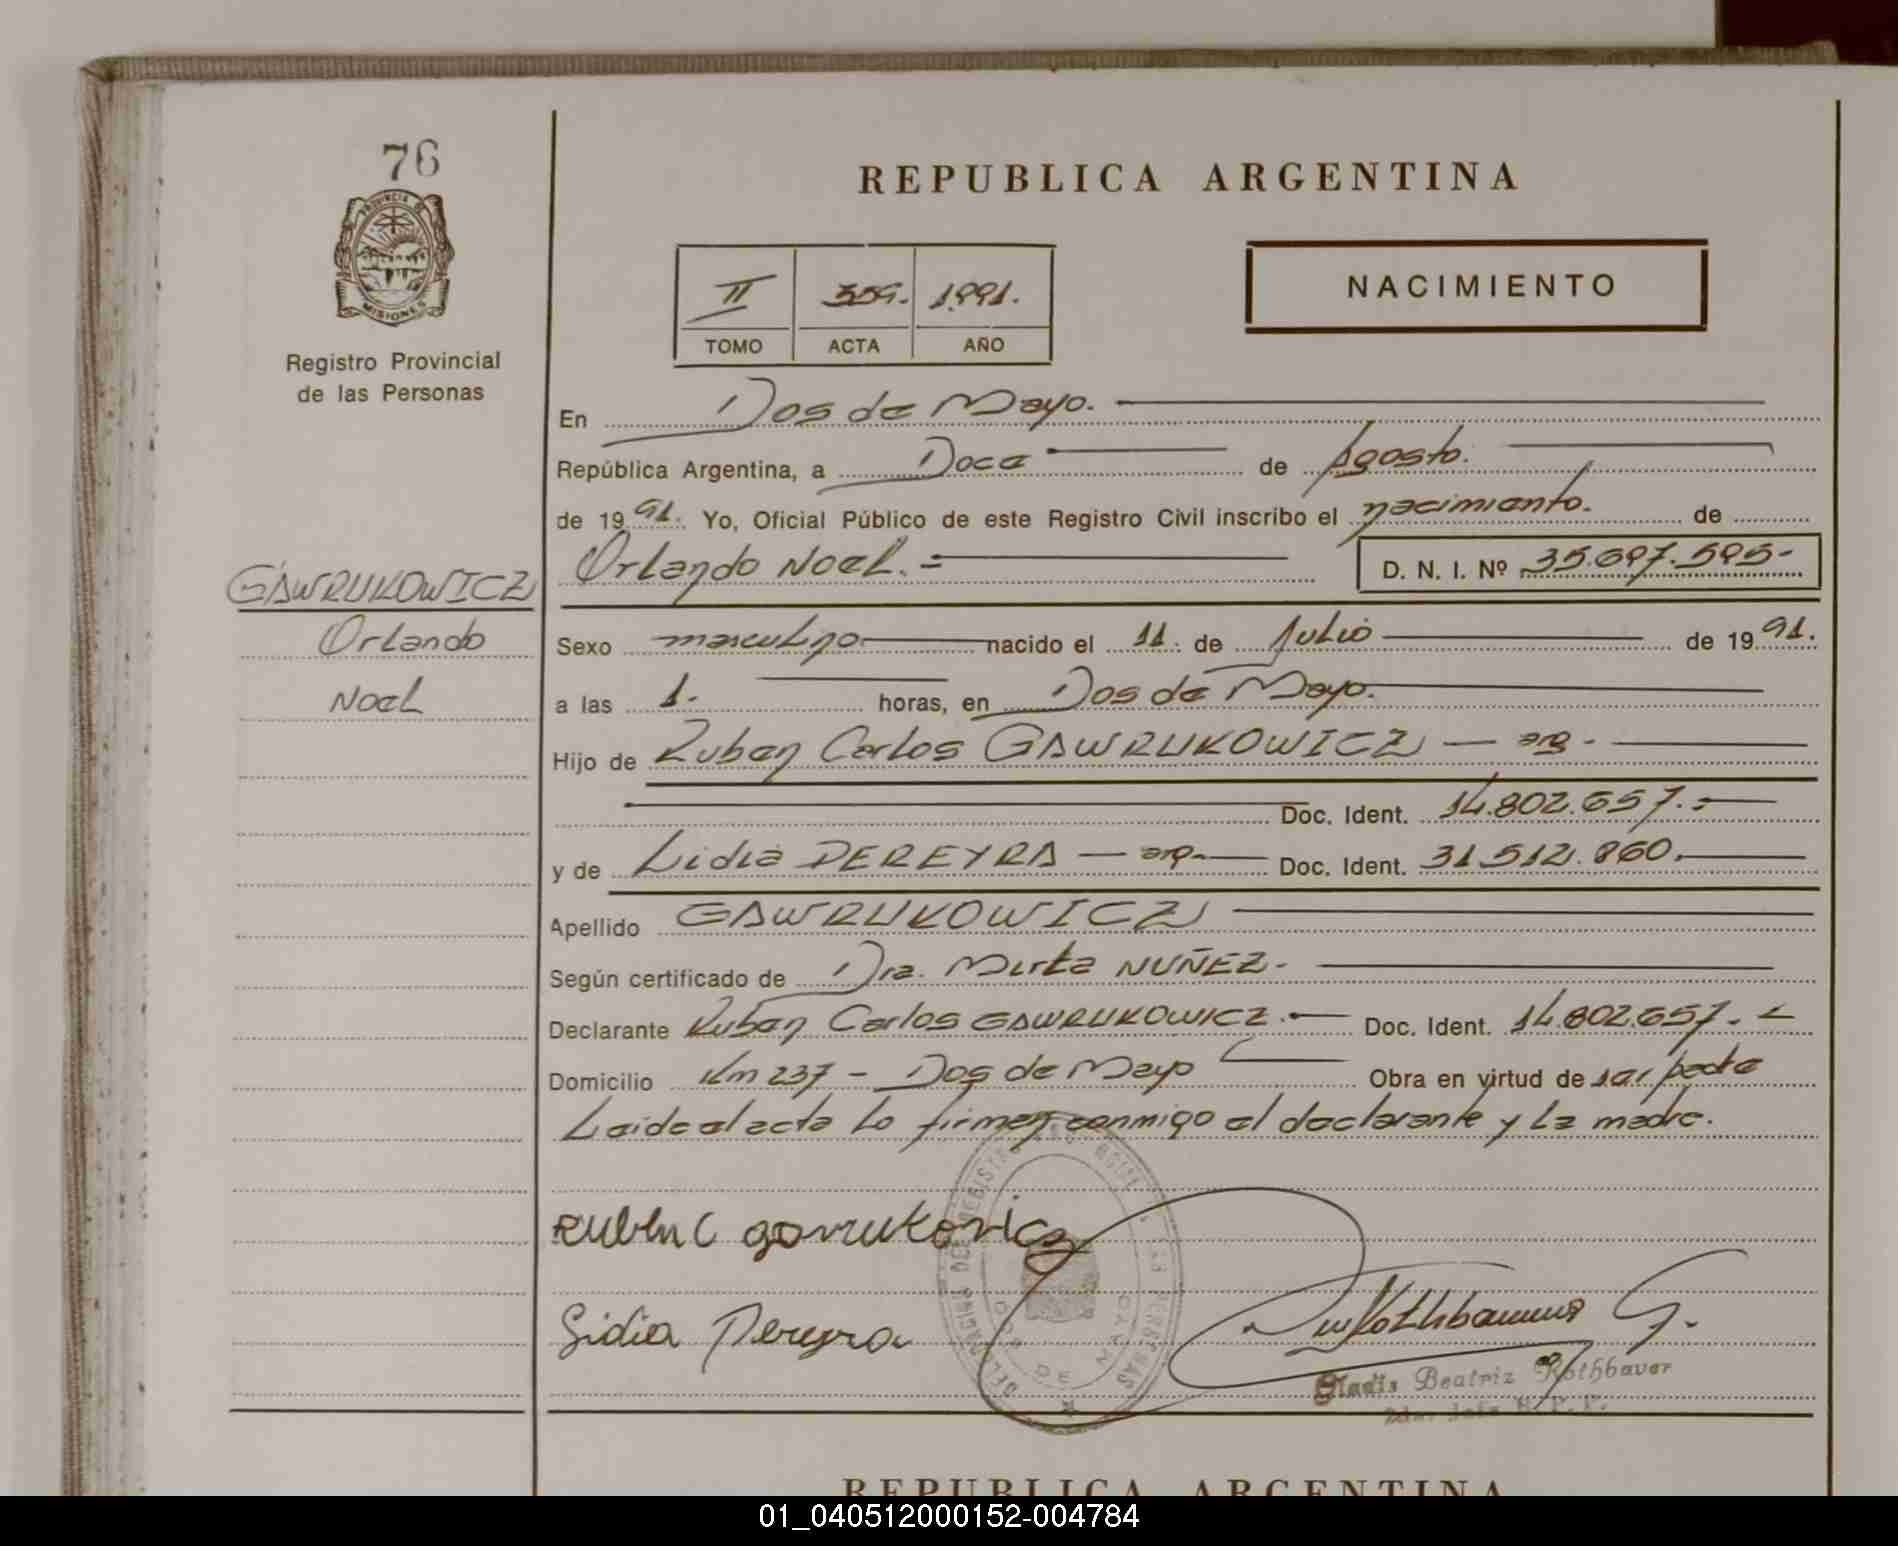 76
REPUBLICA ARGENTINA
PROVINCIA DE
MISIONES
Registro Provincial
de las Personas
II 359. 1991.
TOMO ACTA AÑO
NACIMIENTO
En Dos de Mayo.
República Argentina, a Doce de Agosto.
de 1991. Yo, Oficial Público de este Registro Civil inscribo el nacimiento. de
Orlando Noel. =
D. N. I. Nº 35.697.595-
GAWRUKOWICZ
Orlando
Noel
Sexo masculino nacido el 11. de Julio de 1991.
a las 1. horas, en Dos de Mayo.
Hijo de Ruben Carlos GAWRUKOWICZ — arg. -
Doc. Ident. 14.802.657.-
y de Lidia PEREYRA — arg. — Doc. Ident. 31.512.860.
Apellido GAWRUKOWICZ
Según certificado de Dra. Mirta NUÑEZ.-
Declarante Ruben Carlos GAWRUKOWICZ.- Doc. Ident. 14.802.657.-
Domicilio Km 237 - Dos de Mayo Obra en virtud de
Leida el acta lo firman conmigo el declarante y la madre.
Ruben C gawrukovicz
Lidia Pereyra
Rothbauer G.
Gladis Beatriz Rothbaver
R. P. P.
REPUBLICA ARGENTINA
01_040512000152-004784